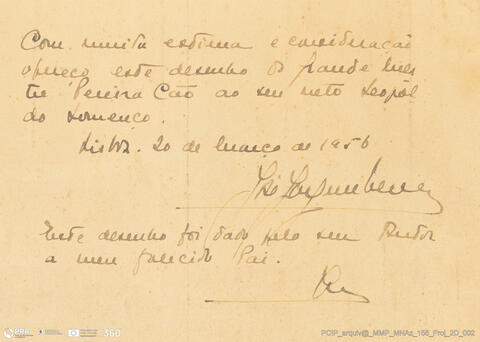 Com muita estima e consideração
ofereço este desenho do grande Mes
tre Pereira Cão ao seu neto Leopol
do Lourenço.
Lisboa. 20 de Março de 1956
Este desenho foi dado pelo seu Autor
a meu falecido Pai.
PRR
360
PCIP_arquiv@_MMP_MNAz_156_Proj_2D_002